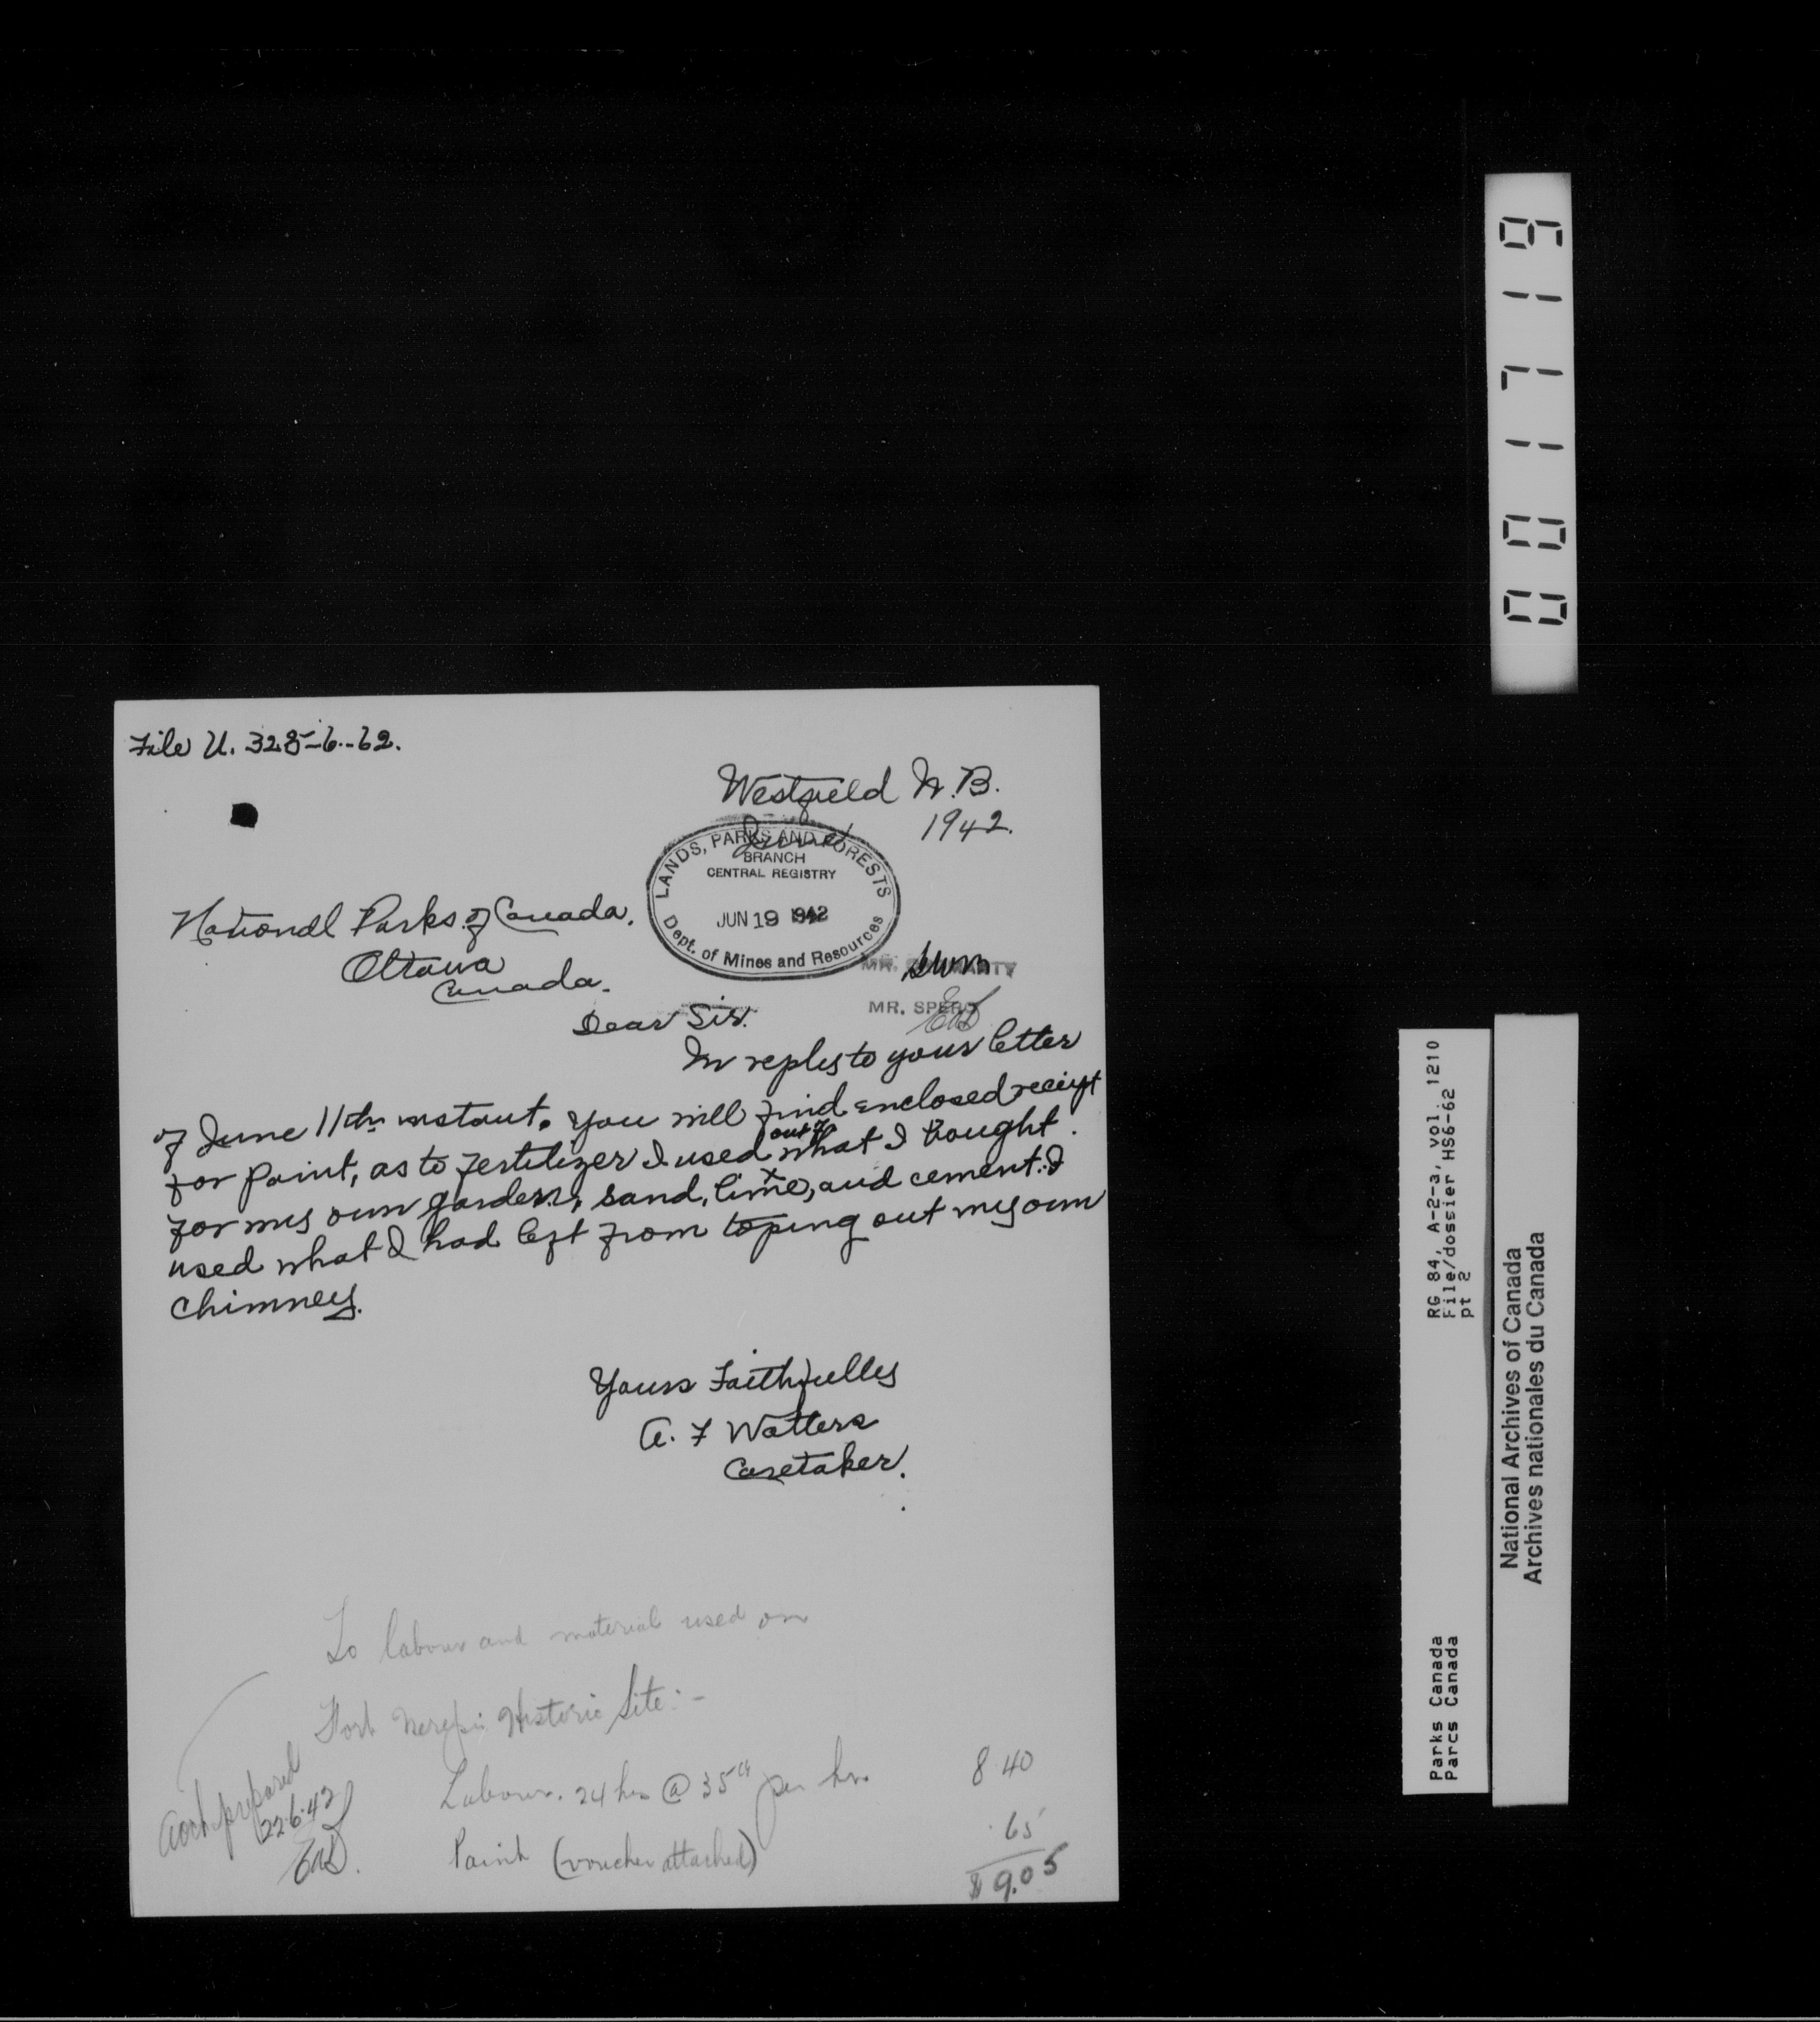 File U. 325-6-62.
Westfield N.B.
June 1942.
LANDS, PARKS AND FORESTS
BRANCH
CENTRAL REGISTRY
JUN 19 1942
Dept. of Mines and Resources
National Parks of Canada.
Ottawa
Canada.
MR. SPERO
Dear Sir.
In reply to your letter
of June 11th instant. You will find enclosed reciept
for paint, as to fertilizer I used out of what I bought
for my own garden, sand, lime, and cement. I
used what I had left from toping out my own
chimney.
Yours Faithfully
A. F Watters
Caretaker.
To labour and material used on
Fort Nerepis Historic Site:-
Labour. 24 hrs @ 35cts per hr. 8.40
Paint (voucher attached) .65
$ 9.05
acct. prepared
22-6-42
001719
RG 84, A-2-a, vol. 1210
File/dossier HS6-62
pt 2
Parks Canada
Parcs Canada
National Archives of Canada
Archives nationales du Canada